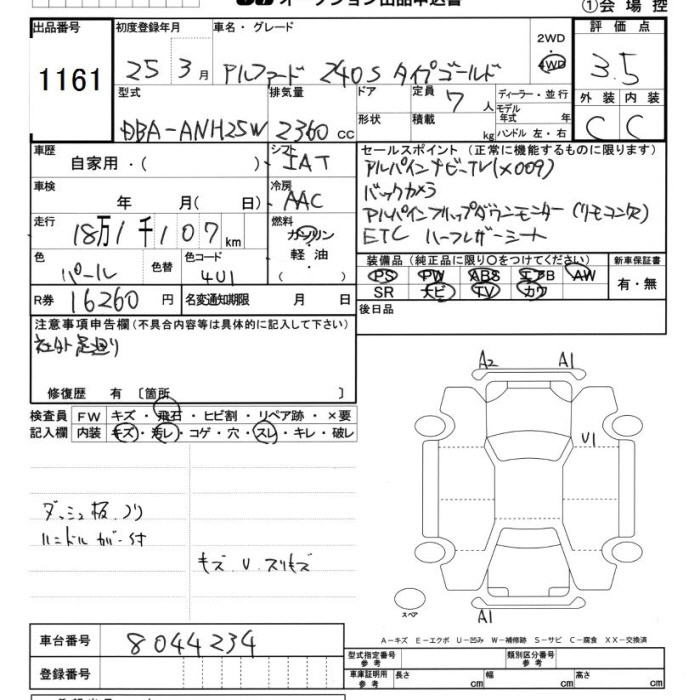 オークション出品申込書
①会場控
出品番号 初度登録年月 車名・グレード 2WD 4WD 評価点
1161 25 3月 アルファード 240S タイプゴールド 3.5
型式 排気量 ドア 定員 7人 ディーラー・並行 外装 内装
DBA-ANH25W 2360cc 形状 積載 kg モデル年式 年 ハンドル 左・右 C C
車歴 自家用・( ) シフト IAT セールスポイント(正常に機能するものに限ります)
アルパインナビーTV(X009)
車検 年 月( 日) 冷房 AAC バックカメラ
走行 18万1千107km 燃料 ガソリン 軽油 ・( ) アルパインフリップダウンモニター(リモコン欠)
ETC ハーフレザーシート
色 パール 色替 色コード 4U1 装備品(純正品に限り○をつけてください) 新車保証書
PS PW ABS エアB AW 有・無
SR ナビ TV カワ
R券 16260円 名変通知期限 月 日 後日品
注意事項申告欄(不具合内容等は具体的に記入して下さい)
社外足廻り
修復歴 有〔箇所 〕
検査員 FW キズ・飛石・ヒビ割・リペア跡・×要
記入欄 内装 キズ・汚レ・コゲ・穴・スレ・キレ・破レ
A2 A1
U1
ダッシュ板 ノリ
キズ.U.スリキズ
スペア
A1
A-キズ E-エクボ U-凹み W-補修跡 S-サビ C-腐食 XX-交換済
車台番号 8044234
型式指定番号 参考 類別区分番号 参考
登録番号 車庫証明用 参考 長さ cm 幅 cm 高さ cm